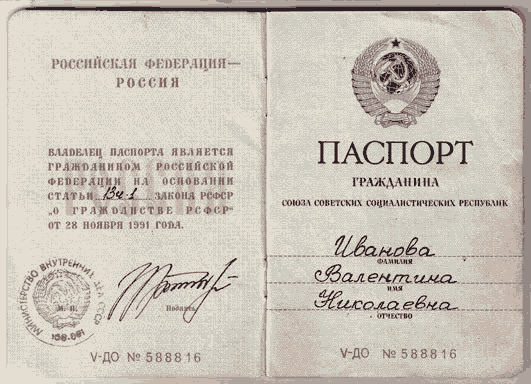 РОССИЙСКАЯ ФЕДЕРАЦИЯ—
РОССИЯ
ВЛАДЕЛЕЦ ПАСПОРТА ЯВЛЯЕТСЯ
ГРАЖДАНИНОМ РОССИЙСКОЙ
ФЕДЕРАЦИИ НА ОСНОВАНИИ
СТАТЬИ 13ч-1 ЗАКОНА РСФСР
„О ГРАЖДАНСТВЕ РСФСР“
ОТ 28 НОЯБРЯ 1991 ГОДА.
МИНИСТЕРСТВО ВНУТРЕННИХ ДЕЛ СССР
М. П.
Подпись
V-ДО № 588816
ПАСПОРТ
ГРАЖДАНИНА
СОЮЗА СОВЕТСКИХ СОЦИАЛИСТИЧЕСКИХ РЕСПУБЛИК
Иванова
ФАМИЛИЯ
Валентина
ИМЯ
Николаевна
ОТЧЕСТВО
V-ДО № 588816